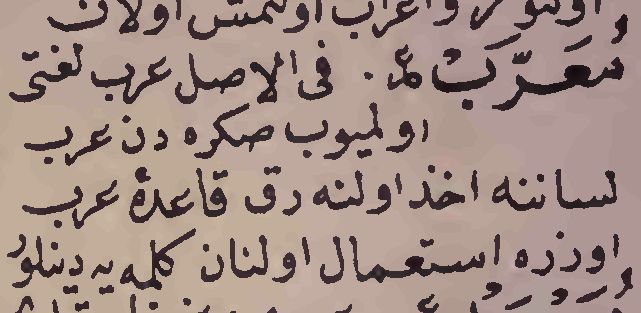 اولنور واعراب اولنمش اولان
مُعَرَّبْ ع. فى الاصل عرب لغتى
اولميوب صكره دن عرب
لساننه اخذ اولنه رق قاعدهٔ عرب
اوزره استعمال اولنان كلمه يه دينلور